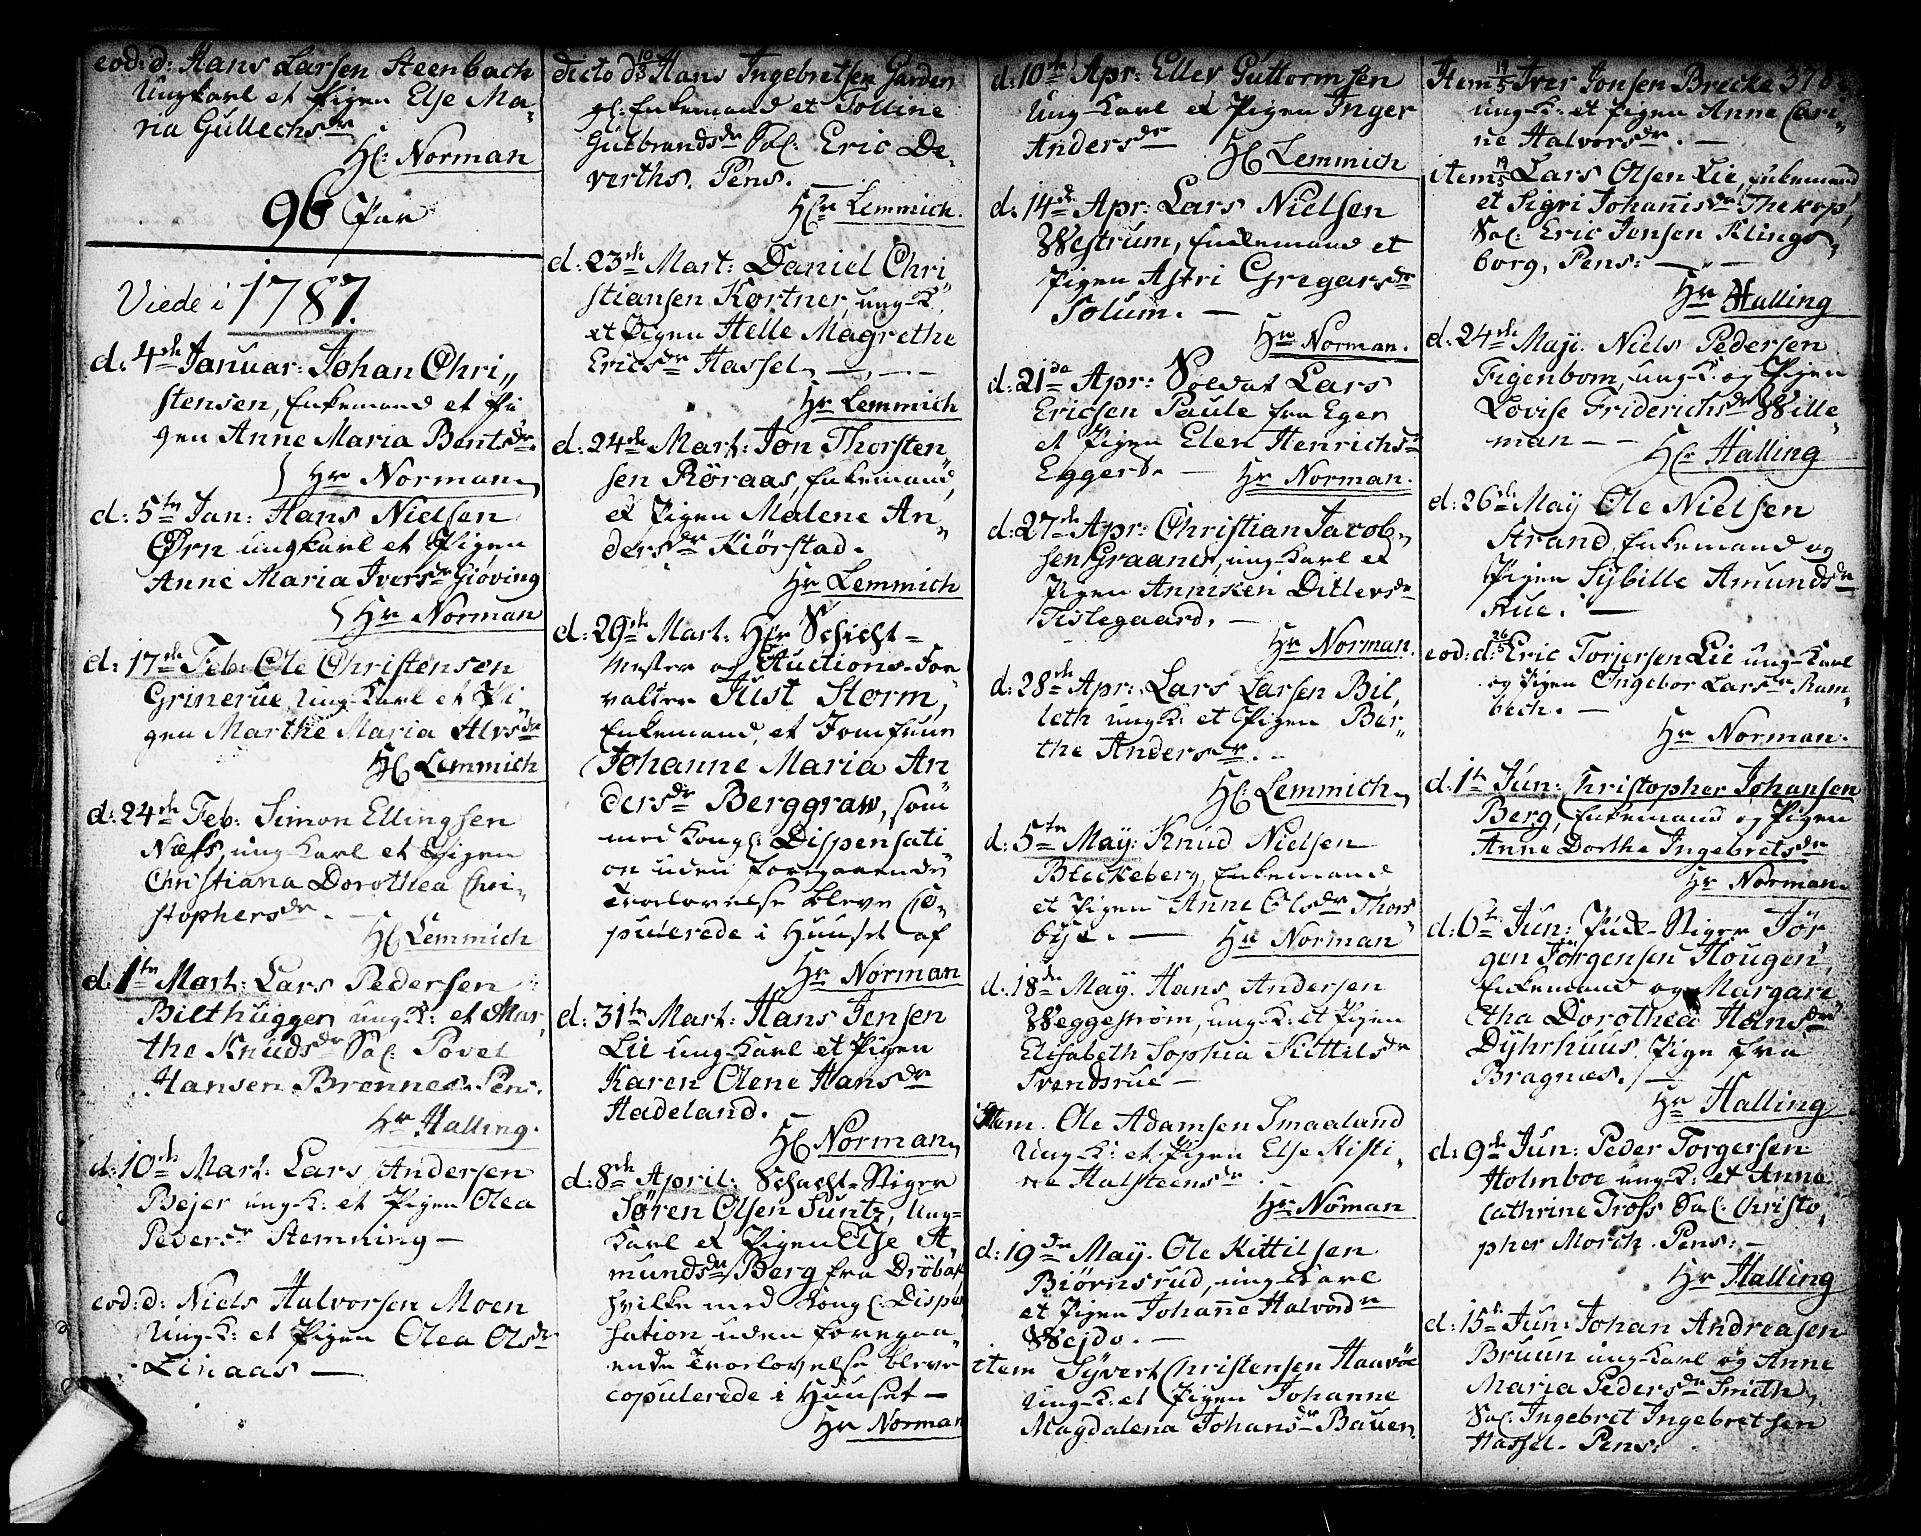 eod: d: Hans Larsen Steenbach
Ungkarl et Pigen Else Ma-
ria Gullechsdr
Hl: Norman
96 Par
Viede i 1787.
d: 4de Januar: Johan Chri-
stensen, Enkemand et Pi-
gen Anne Maria Bentsdr.
Hr Norman
d: 5te Jan: Hans Nielsen
Ørn ungkarl et Pigen
Anne Maria Iversdr Giöving
Hr Norman
d: 17de Feb: Ole Christensen
Grinerue, Ung-Karl et Pi-
gen Marthe Maria Alvsdr
Hl Lemmich
d: 24de Feb: Simon Ellingsen
Næss, ung-karl et Pigen
Christiana Dorothea Chri-
stophersdr. —
Hl Lemmich
d: 1te Mart: Lars Pedersen
Bilthugger ung-K: et Mar-
the Knudsdr Sal: Povel
Hansen Brennes Pens.
Hr Halling.
d: 10de Mart: Lars Andersen
Bejer ung-K: et Pigen Olea
Pedersdr Stemning —
eod: d: Niels Halvorsen Moen
Ung-K: et Pigen Olea Olsdr
Linaas —
dicto d 10/3 Hans Ingebretsen Garder
gl: Enkemand et Golline
Gulbrandsdr Sal: Eric De-
verths. Pens.
Hr Lemmich.
d: 23de Mart: Daniel Chri
stiansen Kortner, ung-K.
et Pigen Helle Magrethe
Ericsdr Hassel, —
Hr Lemmich
d: 24de Mart: Jon Thorsten
sen Röraas, Enkemand,
et Pigen Malene An-
dersdr Kiörstad.
Hr Lemmich
d: 29de Mart: Hr Schicht-
mester og Auctions-For
valter Just Storm,
Enkemand, et Jomfrue
Johanne Maria An
dersdr Berggraw, som
med Kongl: Dispensati
on uden foregaaende
Trolovelse bleve Co-
pulerede i Huuset af
Hr Norman
d: 31te Mart: Hans Jensen
Lie ung-Karl et Pigen
Karen Olene Hansdr
Hadeland.
Hl Norman
d: 8de April: Schacht-Stiger
Søren Olsen Suntz, Ung-
karl et Pigen Else A
mundsdr Berg fra Dröbak
hvilke med Kongl: Dispen
sation uden foregaa-
ende Troelovelse bleve
copulerede i Huuset —
Hr Norman
d: 10de Apr: Ellev Guttormsen
Ung-Karl et Pigen Inger
Andersdr
Hl Lemmich
d. 14de Apr: Lars Nielsen
Westrum, Enkemand et
Pigen Astri Gregarsdr
Solum. —
Hr Norman.
d: 21de Apr: Soldat Lars
Ericsen Paule fra Eger
et Pigen Elen Henrichsdr
Eggers. —
Hr Norman.
d: 27de Apr: Christian Jacob-
sen Graaner, ung-karl et
Pigen Anniken Ditlevsdr
Tislegaard. —
Hr Norman.
d: 28de Apr: Lars Larsen Bil-
leth ung K: et Pigen Ber-
the Andersdr. —
Hl: Lemmich
d: 5te May: Knud Nielsen
Bleckeberg, Enkemand
et Pigen Anne Olsdr Thors
bye. —
Hr Norman
d: 18de May. Hans Andersen
Weggeström, ung-K: et Pigen
Elisabeth Sophia Kittilsdr
Svendsrue —
Item. Ole Adamsen Smaaland
Ung-K: et Pigen Else Kisti-
ne Halsteensdr.
Hr Norman
d: 19de May. Ole Kittilsen
Biörnsrud, ung-Karl
et Pigen Johanne Halvordr
Wejdo. —
item Syvert Christensen Haavöe
Ung-K: et Pigen Johanne
Magdalena Johansdr Bauer.
Item 19/5 Iver Jonsen Brecke 378
ung-K: et Pigen Anne Cari-
ne Halvorsdr. —
item 19/5 Lars Olsen Lie, Enkemand
et Sigri Johannisdr Thekop,
Sal: Eric Jensen Klings-
borg, Pens: —
Hr Halling
d: 24de Maji. Niels Pedersen
Figenbom, ung-K. og Pigen
Lovise Friderichsdr Wille-
man —
Hr Halling
d: 26de May Ole Nielsen
Strand, Enkemand og
Pigen Sybille Amundsdr
Rue. —
eod: d: 26/5 Eric Torjersen Lie ung-Karl
og Pigen Ingebor Larsdr Ram-
bech. —
Hr Norman.
d: 1te Jun: Christopher Johansen
Berg, Enkemand og Pigen
Anne Dorthe Ingebretsdr
Hr Norman.
d: 6te Jun: Puk-Stiger Jör
gen Jörgensen Hougen,
Enkemand og Margare
tha Dorothea Hansdr
Dyhrhuus, Pige fra
Bragnæs. —
Hr Halling
d: 9de Jun: Peder Torgersen
Holmboe ung-K: et Anne
Cathrine Tross Sal: Christo-
pher Morch. Pens: —
Hr Halling
d: 15de Jun: Johan Andreasen
Bruun ung-karl og Anne
Maria Pedersdr Smith,
Sal: Ingebret Ingebretsen
Hassel. Pens: